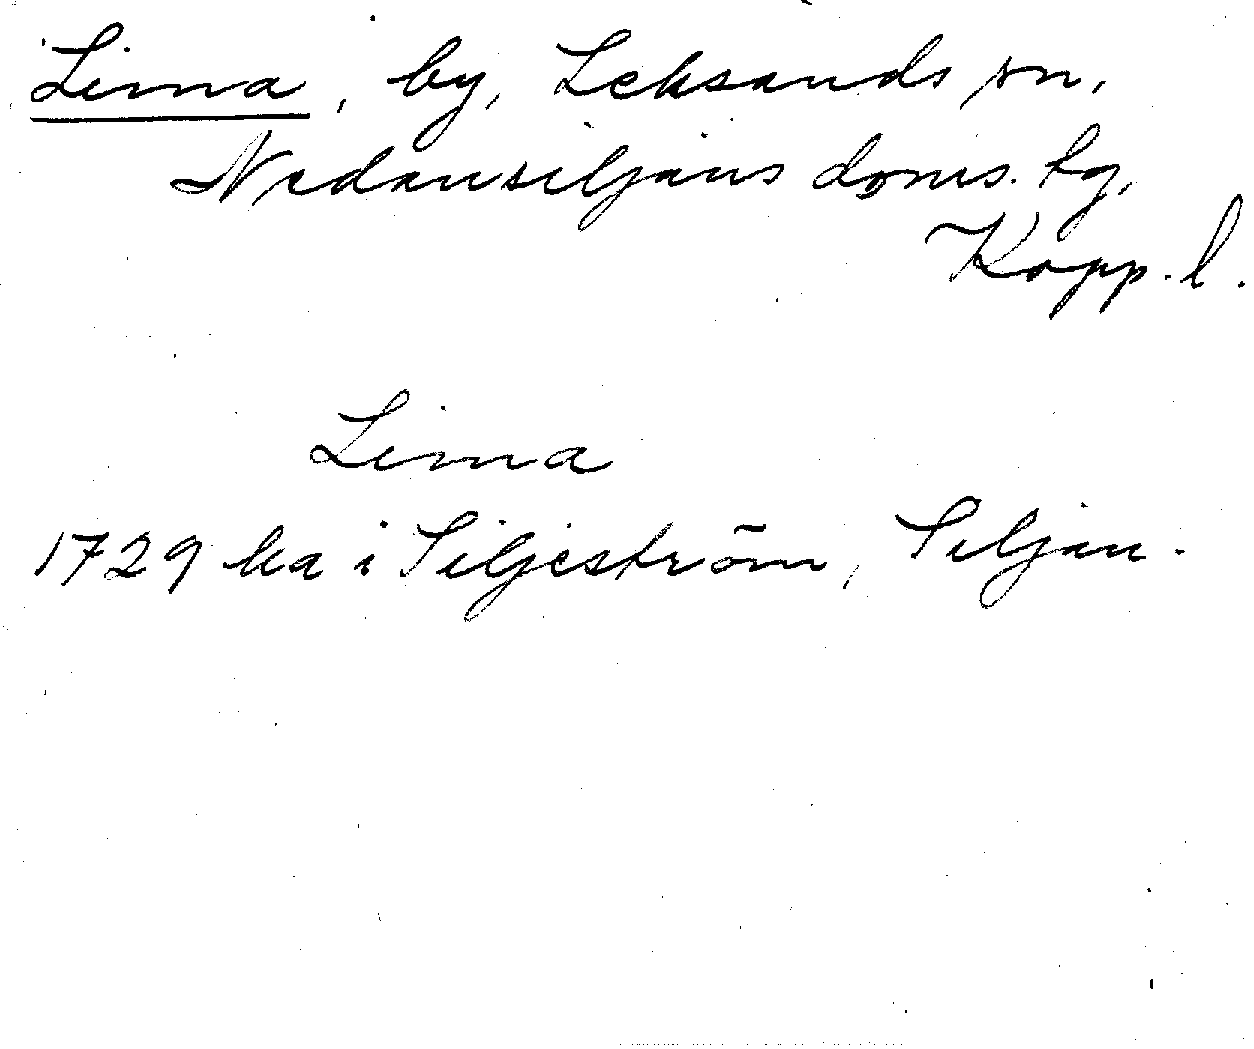 Lima, by, Leksands sn.
Nedansiljans doms. tg,
Kopp. l.
Lima
1729 ka i Siljeström, Siljan.